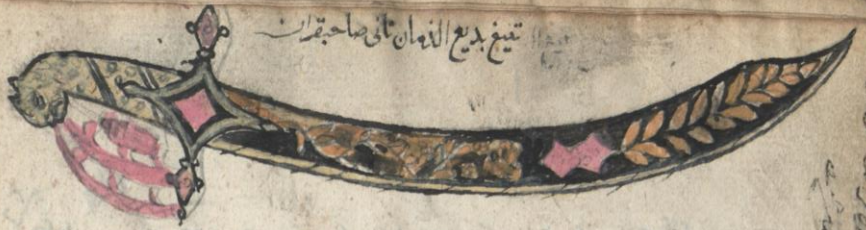 تیغ بدیع الزمان ثانی صاحبقران